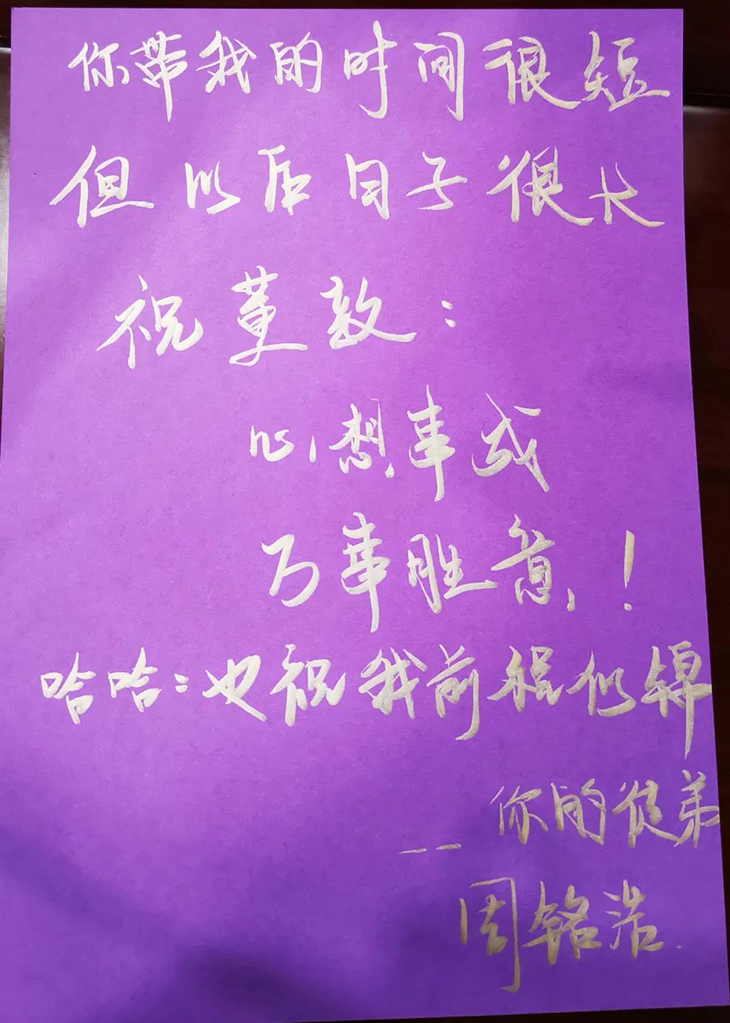 你带我的时间很短
但以后日子很长
祝董敦：
心想事成
万事胜意！
哈哈：也祝我前程似锦
——你的徒弟
周铭浩.